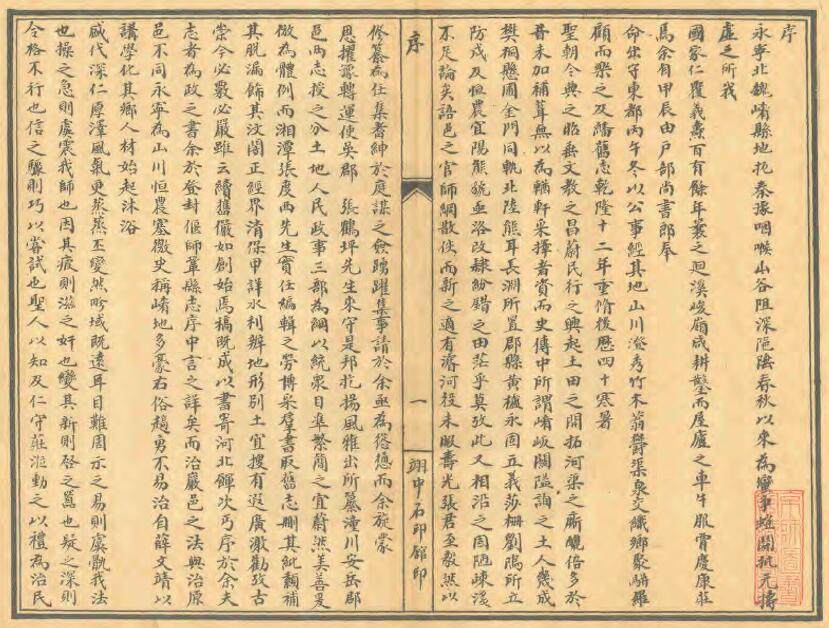 序
永寧北魏崤縣地扼秦豫咽喉山谷阻深陁陰春秋以來為
虛之所我
國家仁覆義燾百有餘年曩之迴溪峻嶺咸耕鑿而屋廬之車牛服賈慶康莊
焉余自甲辰由戶部尚書郎奉
命出守東都丙午冬以公事經其地山川澄秀竹木蓊鬱渠泉交織鄉聚駢羅
顧而樂之及繙舊志乾隆十二年重脩後歷四十寒暑
聖朝令典之昭垂文教之昌蔚民行之興起土田之開拓河渠之斸鑿倍多於
昔未加補葺無以為輶軒采擇者資而史傳中所謂崤岅關隘詢之土人幾成
樊桐懸圃金門同軌北陸熊耳長淵所置郡縣黃櫨永固立義莎柵劉隝所立
防戍及恒農宜陽熊貌亟洛改隸紛錯之由茫乎莫攷此又相沿之固陋竦漏
不足論矣語邑之官師綱散佚而新之適有濬河役未暇壽光張君至毅然以
序
一
翊中石印館印
修纂為任集耆紳於庭謀之僉踴躍集事請於余亟為慫慂而余旋蒙
恩擢豫轉運使吳郡 張鶴坪先生來守是邦扢揚風雅出所纂潼川安岳郡
邑兩志授之分土地人民政事三部為綱以統眾目準繁簡之宜蔚然美善爰
倣為體例而湘潭張度西先生實任編輯之勞博采羣書取舊志刪其紕纇補
其脫漏飾其汶闇正經界清保甲詳水利辨地形別土宜搜有遐廣激勸攷古
崇今必覈必嚴雖云續舊儼如創始焉稿既成以書寄河北鐸次丐序於余夫
志者為政之書余於登封偃師鞏縣志序中言之詳矣而治嚴邑之法與治原
邑不同永寧為山川恒農塞徼史稱崤地多豪右俗趫勇不易治自薛文靖以
講學化其鄉人材始起沐浴
盛代深仁厚澤風氣更蒸蒸丕變然所域既遠耳目難周示之易則虞翫我法
也操之急則虞震我師也因其疲則滋之奸也變其新則啓之囂也疑之深則
令格不行也信之驟則巧以嘗試也聖人以知及仁守莊涖動之以禮為治民